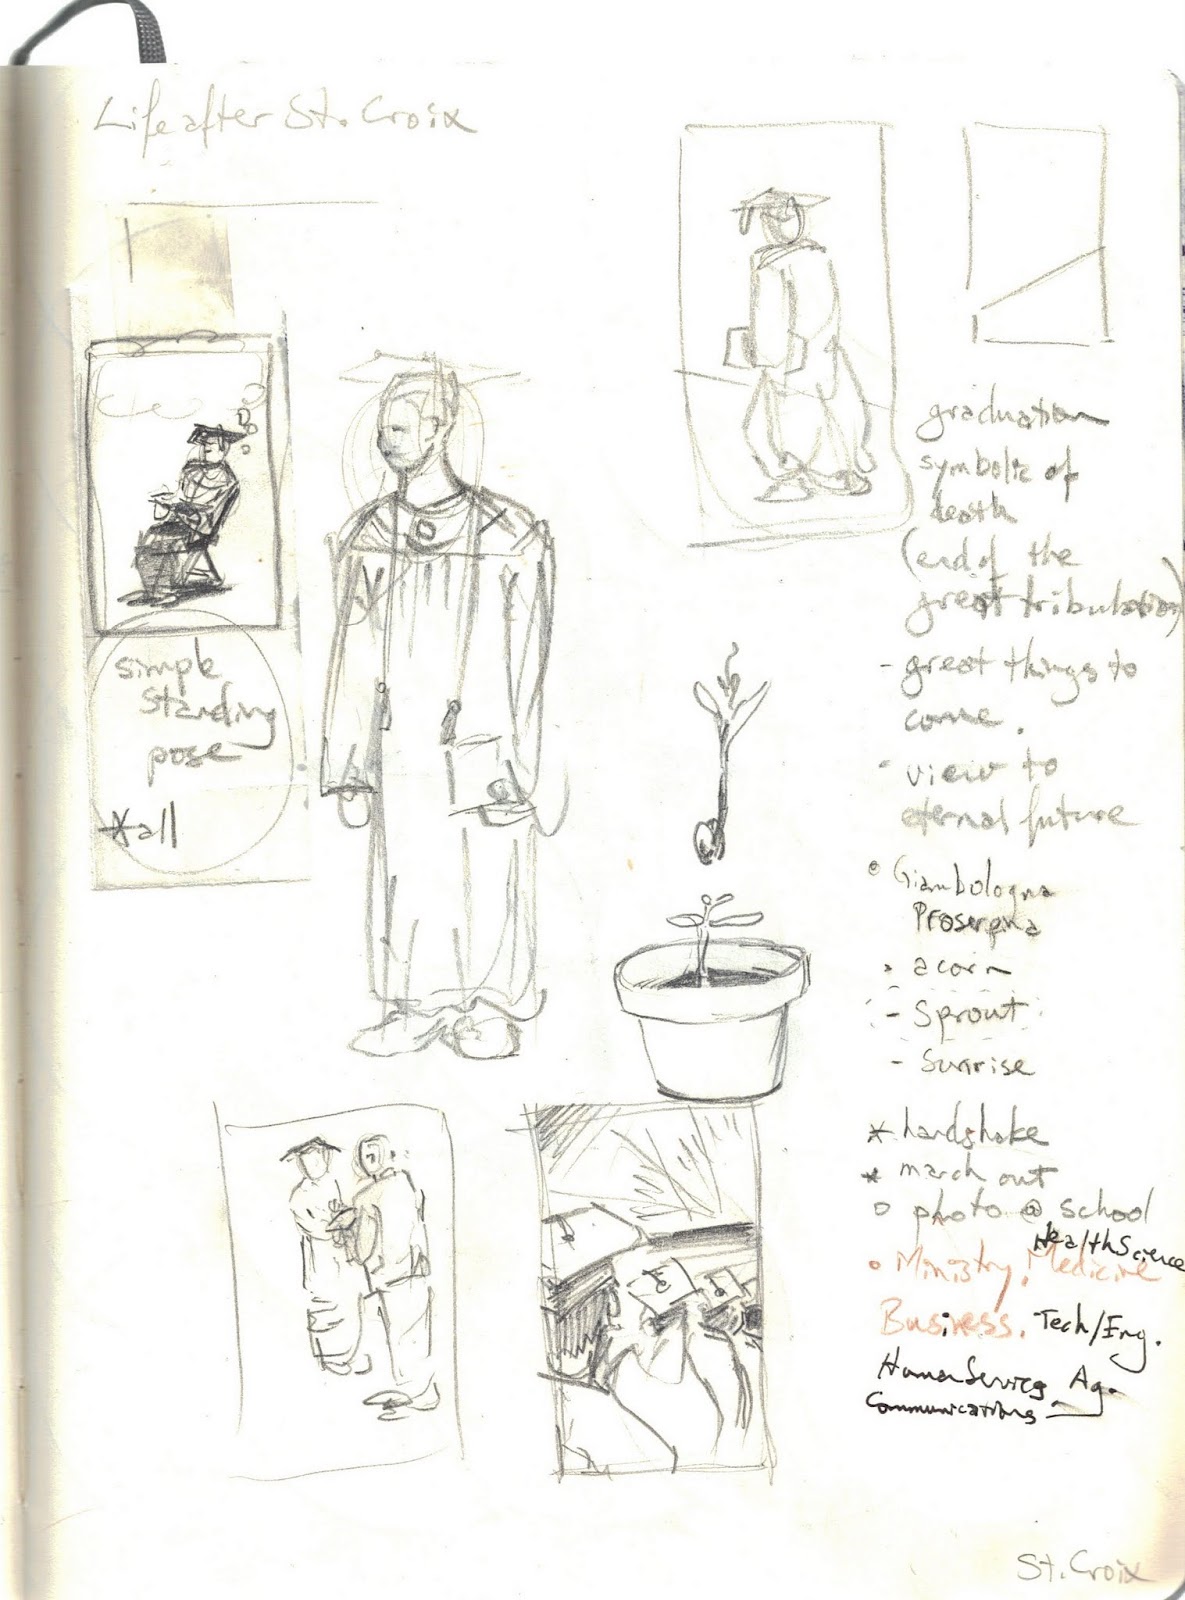 Life after St. Croix
simple
standing
pose
*all
graduation
symbolic of
death
(end of the
great tribulation)
- great things to
come.
- view to
eternal future
Giambologna
Proserpina
• acorn
- Sprout
- Sunrise
* handshake
* march out
o photo @ school
Health Science
• Ministry, Medicine
Business. Tech/Eng.
Human Services Ag.
Communications
St. Croix